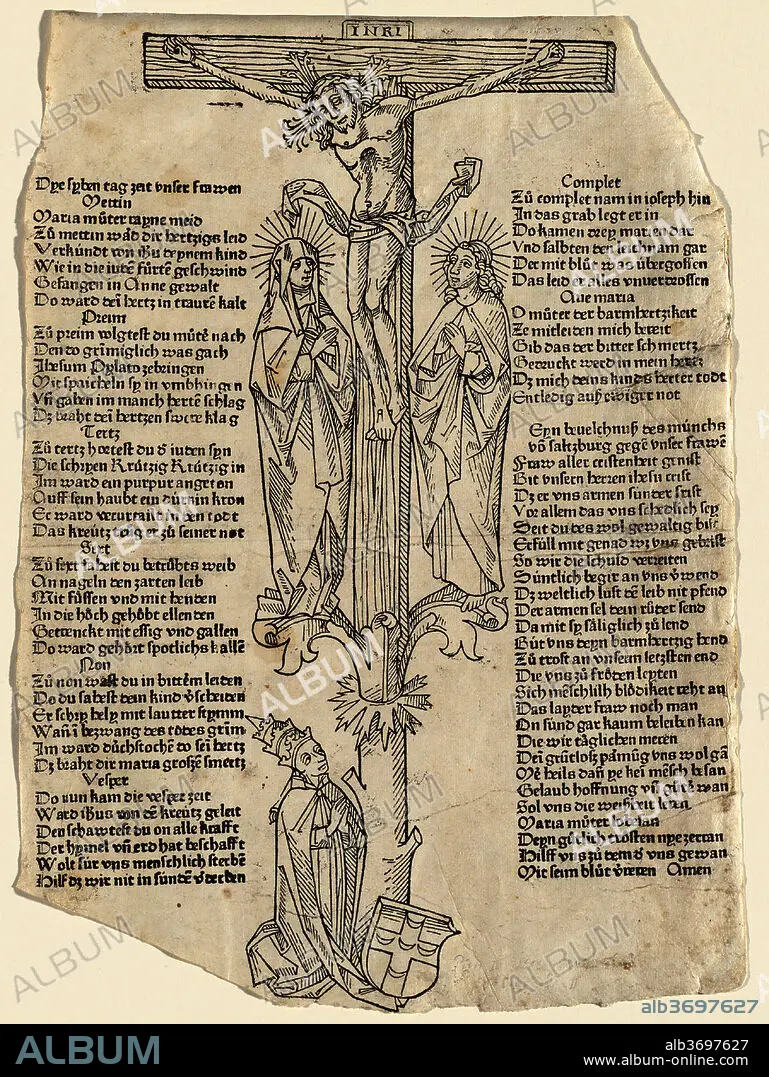 INRI
Dye syben tag zeit vnser frawen
Mettin
Maria můter rayne meid
Zů mettin ward dir hertzigs leid
Verkündt von ihũ deynem kind
Wie in die iutẽ fürtẽ geschwind
Gefangen in Anne gewalt
Do ward deĩ hertz in traurẽ kalt
Preim
Zů preim volgtest du můtẽ nach
Den do grimiglich was gach
Ihesum Pylato zebringen
Mit spaicheln sy in vmbhingen
Vñ gaben im manch hertẽ schlag
Dz braht deĩ hertzen swere klag
Tertz
Zů tertz hortest du d iuden syn
Die schryen krützig krützig in
Im ward ein purpur angeton
Auff sein haubt ein dürnin kron
Er ward verurteilt in den todt
Das kreütz zog er zů seiner not
Sext
Zů sext sahest du betrübtes weib
An nageln den zarten leib
Mit füssen vnd mit henden
In die höch gehöbt ellenden
Getrenckt mit essig vnd gallen
Do ward gehört spotlichs kallẽ
Non
Zů non wast du in bittẽm leiden
Do du sahest dein kind v̈scheiden
Er schry hely mit lautter stymm
Wañ bezwang des todes grim
Im ward durchstochẽ do sei hertz
Dz braht dir maria groszẽ smertz
Vesper
Do nun kam die vesper zeit
Ward ihũs von dẽ kreütz geleit
Den schawtest du on alle krafft
Der hymel vñ erd hat beschafft
Wolt für vns menschlich sterbẽ
Hilf dz wir nit in sünden v̈derben
Complet
Zů complet nam in ioseph hin
In das grab legt er in
Do kamen drey marien dar
Vnd salbten den leichnam gar
Der mit blůt was übergossen
Das leid er alles vnuerdrossen
Aue maria
O můter der barmhertzikeit
Ze mitleiden mich bereit
Gib das der bitter schmertz
Getruckt werd in mein hertz
Dz mich deins kinds herter todt
Entledig auß ewiger not
Eyn beuelchnuß des münchs
võ saltzburg gegẽ vnser frawẽ
Fraw aller cristenheit genist
Bit vnsern herren ihesu crist
Dz er vns armen sünder frist
Vor allem das vns schedlich sey
Seit du des wol gewaltig bist
Erfüll mit genad wz vns gebrist
So wir die schuld verreiten
Süntlich begir an vns v̈wend
Dz weltlich lust dẽ leib nit pfend
Der armen sel dein rüter send
Da mit sy säliglich zů lend
Büt vns deyn barmhertzig hend
Zů trost an vnserm letzsten end
Die vns zů fröden leyten
Sich mẽschlich blödikeit
Das layder fraw noch man
On sünd gar kaum beleiben kan
Die wir täglichen meren
Deĩ grütlosz
hoffnung
Sol vns die weißheit leren
Maria můter
Deyn gütlich trösten nye zerran
Hilff vns zů dem d vns gewan
Mit seim blůt Amen
ALBUM
alb3697627
ALBUM
alb3697627
www.album-online.com